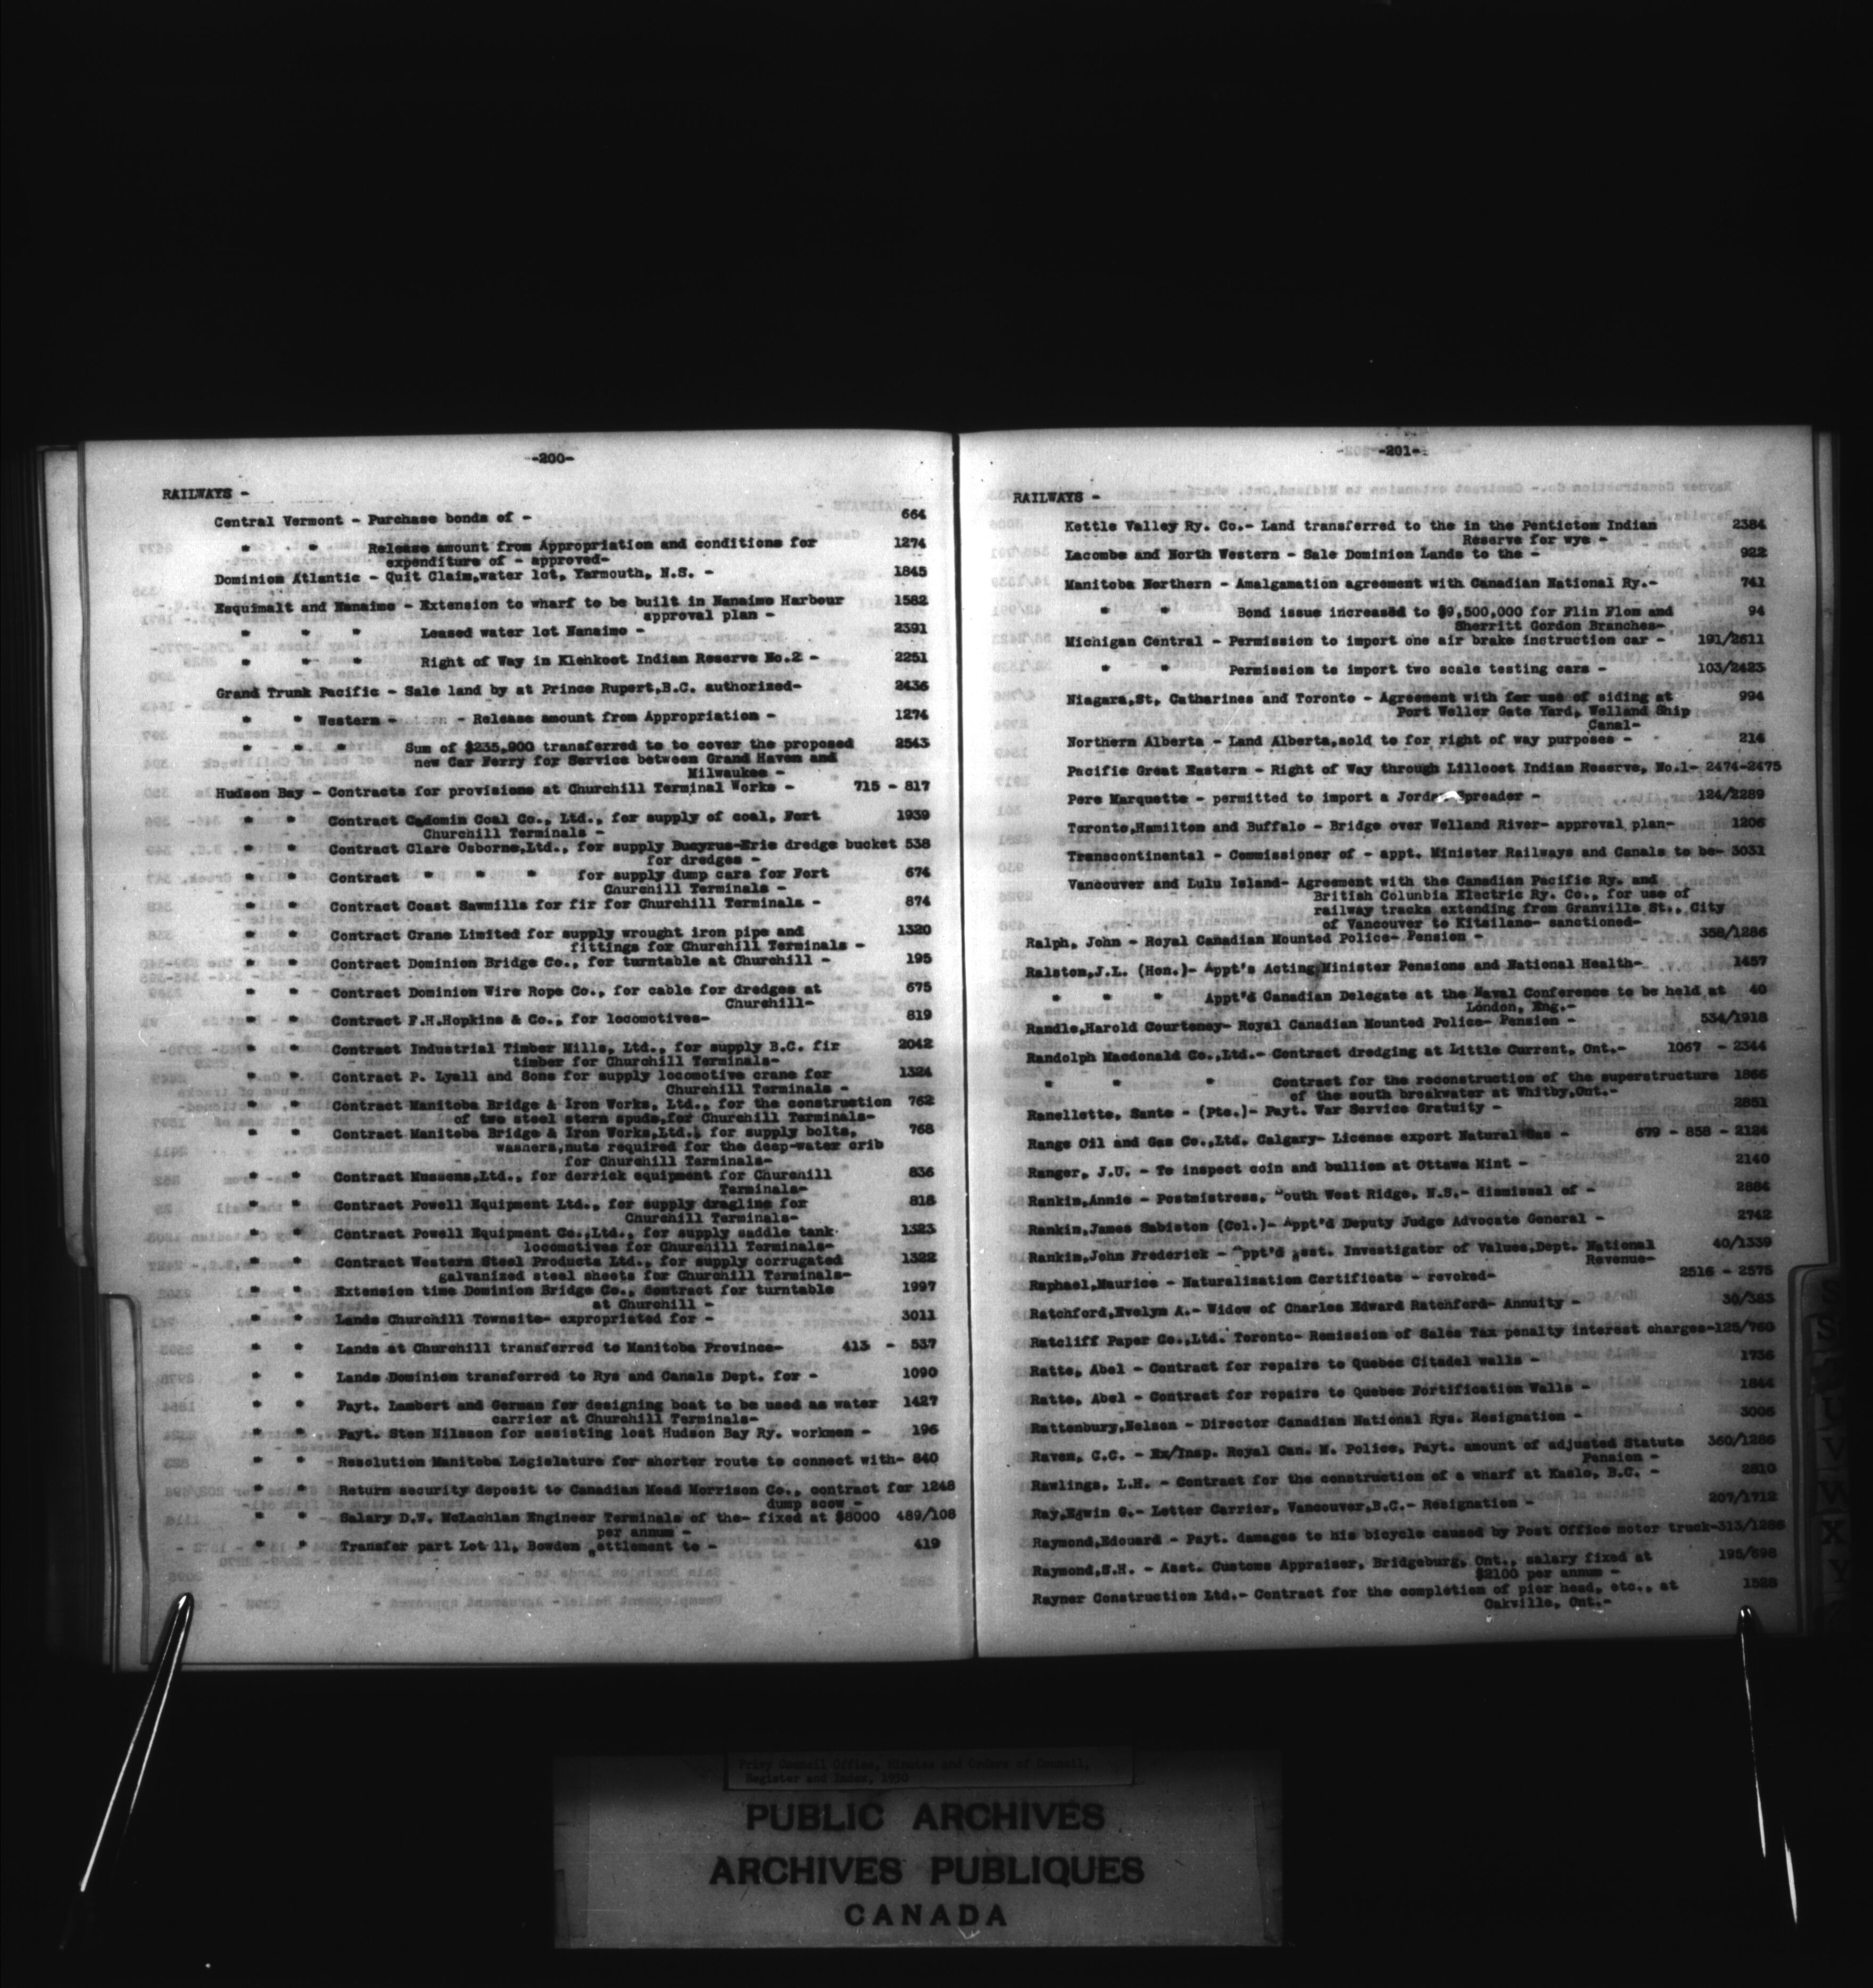 -200-
RAILWAYS -
Central Vermont - Purchase bonds of - 664
" " Release amount from Appropriation and conditions for 1274
expenditure of - approved-
Dominion Atlantic - Quit Claim,water lot, Yarmouth, N.S. - 1845
Esquimalt and Nanaimo - Extension to wharf to be built in Nanaimo Harbour 1582
approval plan -
" " " Leased water lot Nanaimo - 2391
" " " Right of Way in Klehkoot Indian Reserve No.2 - 2251
Grand Trunk Pacific - Sale land by at Prince Rupert,B.C. authorized- 2436
" " Western - - Release amount from Appropriation - 1274
" " " Sum of $235,900 transferred to to cover the proposed 2543
new Car Ferry for Service between Grand Haven and
Milwaukee -
Hudson Bay - Contracts for provisions at Churchill Terminal Works - 715 - 817
" " Contract Cadomin Coal Co., Ltd., for supply of coal, Fort 1939
Churchill Terminals -
" " Contract Clare Osborne,Ltd., for supply Bucyrus-Erie dredge bucket 538
for dredges -
" " Contract " " " for supply dump cars for Fort 674
Churchill Terminals -
" " Contract Coast Sawmills for fir for Churchill Terminals - 874
" " Contract Crane Limited for supply wrought iron pipe and 1320
fittings for Churchill Terminals -
" " Contract Dominion Bridge Co., for turntable at Churchill - 195
" " Contract Dominion Wire Rope Co., for cable for dredges at 675
Churchill-
" " Contract F.H.Hopkins & Co., for locomotives- 819
" " Contract Industrial Timber Mills, Ltd., for supply B.C. fir 2042
timber for Churchill Terminals-
" " Contract P. Lyall and Sons for supply locomotive crane for 1324
Churchill Terminals -
" " Contract Manitoba Bridge & Iron Works, Ltd., for the construction 762
of two steel stern spuds,for Churchill Terminals-
" " Contract Manitoba Bridge & Iron Works,Ltd., for supply bolts, 768
washers,nuts required for the deep-water crib
for Churchill Terminals-
" " Contract Mussens,Ltd., for derrick equipment for Churchill 836
Terminals-
" " Contract Powell Equipment Ltd., for supply dragline for 818
Churchill Terminals-
" " Contract Powell Equipment Co.,Ltd., for supply saddle tank 1323
locomotives for Churchill Terminals-
" " Contract Western Steel Products Ltd., for supply corrugated 1322
galvanized steel sheets for Churchill Terminals-
" " Extension time Dominion Bridge Co., Contract for turntable 1997
at Churchill -
" " Lands Churchill Townsite- expropriated for - 3011
" " Lands at Churchill transferred to Manitoba Province- 413 - 537
" " Lands Dominion transferred to Rys and Canals Dept. for - 1090
" " Payt. Lambert and German for designing boat to be used as water 1427
carrier at Churchill Terminals-
" " Payt. Sten Nilsson for assisting lost Hudson Bay Ry. workmen - 196
" " Resolution Manitoba Legislature for shorter route to connect with- 840
" " Return security deposit to Canadian Mead Morrison Co., contract for 1248
dump scow -
" " Salary D.W. McLachlan Engineer Terminals of the- fixed at $8000 489/108
per annum -
" " Transfer part Lot 11, Bowden settlement to - 419
-201-
RAILWAYS -
Kettle Valley Ry. Co.- Land transferred to the in the Penticton Indian 2384
Reserve for wye -
Lacombe and North Western - Sale Dominion Lands to the - 922
Manitoba Northern - Amalgamation agreement with Canadian National Ry.- 741
" " Bond issue increased to $9,500,000 for Flin Flon and 94
Sherritt Gordon Branches-
Michigan Central - Permission to import one air brake instruction car - 191/2611
" " Permission to import two scale testing cars - 103/2423
Niagara,St. Catharines and Toronto - Agreement with for use of siding at 994
Port Weller Gate Yard, Welland Ship
Canal-
Northern Alberta - Land Alberta,sold to for right of way purposes - 214
Pacific Great Eastern - Right of Way through Lillooet Indian Reserve, No.1- 2474-2475
Pere Marquette - permitted to import a Jordan Spreader - 124/2289
Toronto,Hamilton and Buffalo - Bridge over Welland River- approval plan- 1206
Transcontinental - Commissioner of - appt. Minister Railways and Canals to be- 3031
Vancouver and Lulu Island- Agreement with the Canadian Pacific Ry. and
British Columbia Electric Ry. Co., for use of
railway tracks extending from Granville St., City
of Vancouver to Kitsilano- sanctioned-
Ralph, John - Royal Canadian Mounted Police- Pension - 358/1286
Ralston,J.L. (Hon.)- Appt's Acting Minister Pensions and National Health- 1457
" " " Appt'd Canadian Delegate at the Naval Conference to be held at 40
London, Eng.-
Randle,Harold Courtenay- Royal Canadian Mounted Police- Pension - 534/1918
Randolph Macdonald Co.,Ltd.- Contract dredging at Little Current, Ont.- 1067 - 2344
" " " Contract for the reconstruction of the superstructure 1866
of the south breakwater at Whitby,Ont.-
Ranellette, Sante - (Pte.)- Payt. War Service Gratuity - 2851
Range Oil and Gas Co.,Ltd. Calgary- License export Natural Gas - 679 - 858 - 2124
Ranger, J.U. - To inspect coin and bullion at Ottawa Mint - 2140
Rankin,Annie - Postmistress, South West Ridge, N.S.- dismissal of - 2884
Rankin,James Sabiston (Col.)- Appt'd Deputy Judge Advocate General - 2742
Rankin,John Frederick - Appt'd Asst. Investigator of Values,Dept. National 40/1339
Revenue-
Raphael,Maurice - Naturalization Certificate - revoked- 2516 - 2575
Ratchford,Evelyn A.- Widow of Charles Edward Ratchford- Annuity - 30/383
Ratcliff Paper Co.,Ltd. Toronto- Remission of Sales Tax penalty interest charges-125/760
Ratte, Abel - Contract for repairs to Quebec Citadel walls - 1736
Ratte, Abel - Contract for repairs to Quebec Fortification Walls - 1844
Rattenbury,Nelson - Director Canadian National Rys. Resignation - 3006
Raven, C.C. - Ex/Insp. Royal Can. M. Police, Payt. amount of adjusted Statute 360/1286
Pension -
Rawlings, L.H. - Contract for the construction of a wharf at Kaslo, B.C. - 2810
Ray,Edwin G.- Letter Carrier, Vancouver,B.C.- Resignation - 207/1712
Raymond,Edouard - Payt. damages to his bicycle caused by Post Office motor truck-313/1286
Raymond,S.H. - Asst. Customs Appraiser, Bridgeburg, Ont., salary fixed at 195/598
$2100 per annum -
Rayner Construction Ltd.- Contract for the completion of pier head, etc., at 1528
Oakville, Ont.-
Privy Council Office, Minutes and Orders of Council,
Register and Index, 1930
PUBLIC ARCHIVES
ARCHIVES PUBLIQUES
CANADA